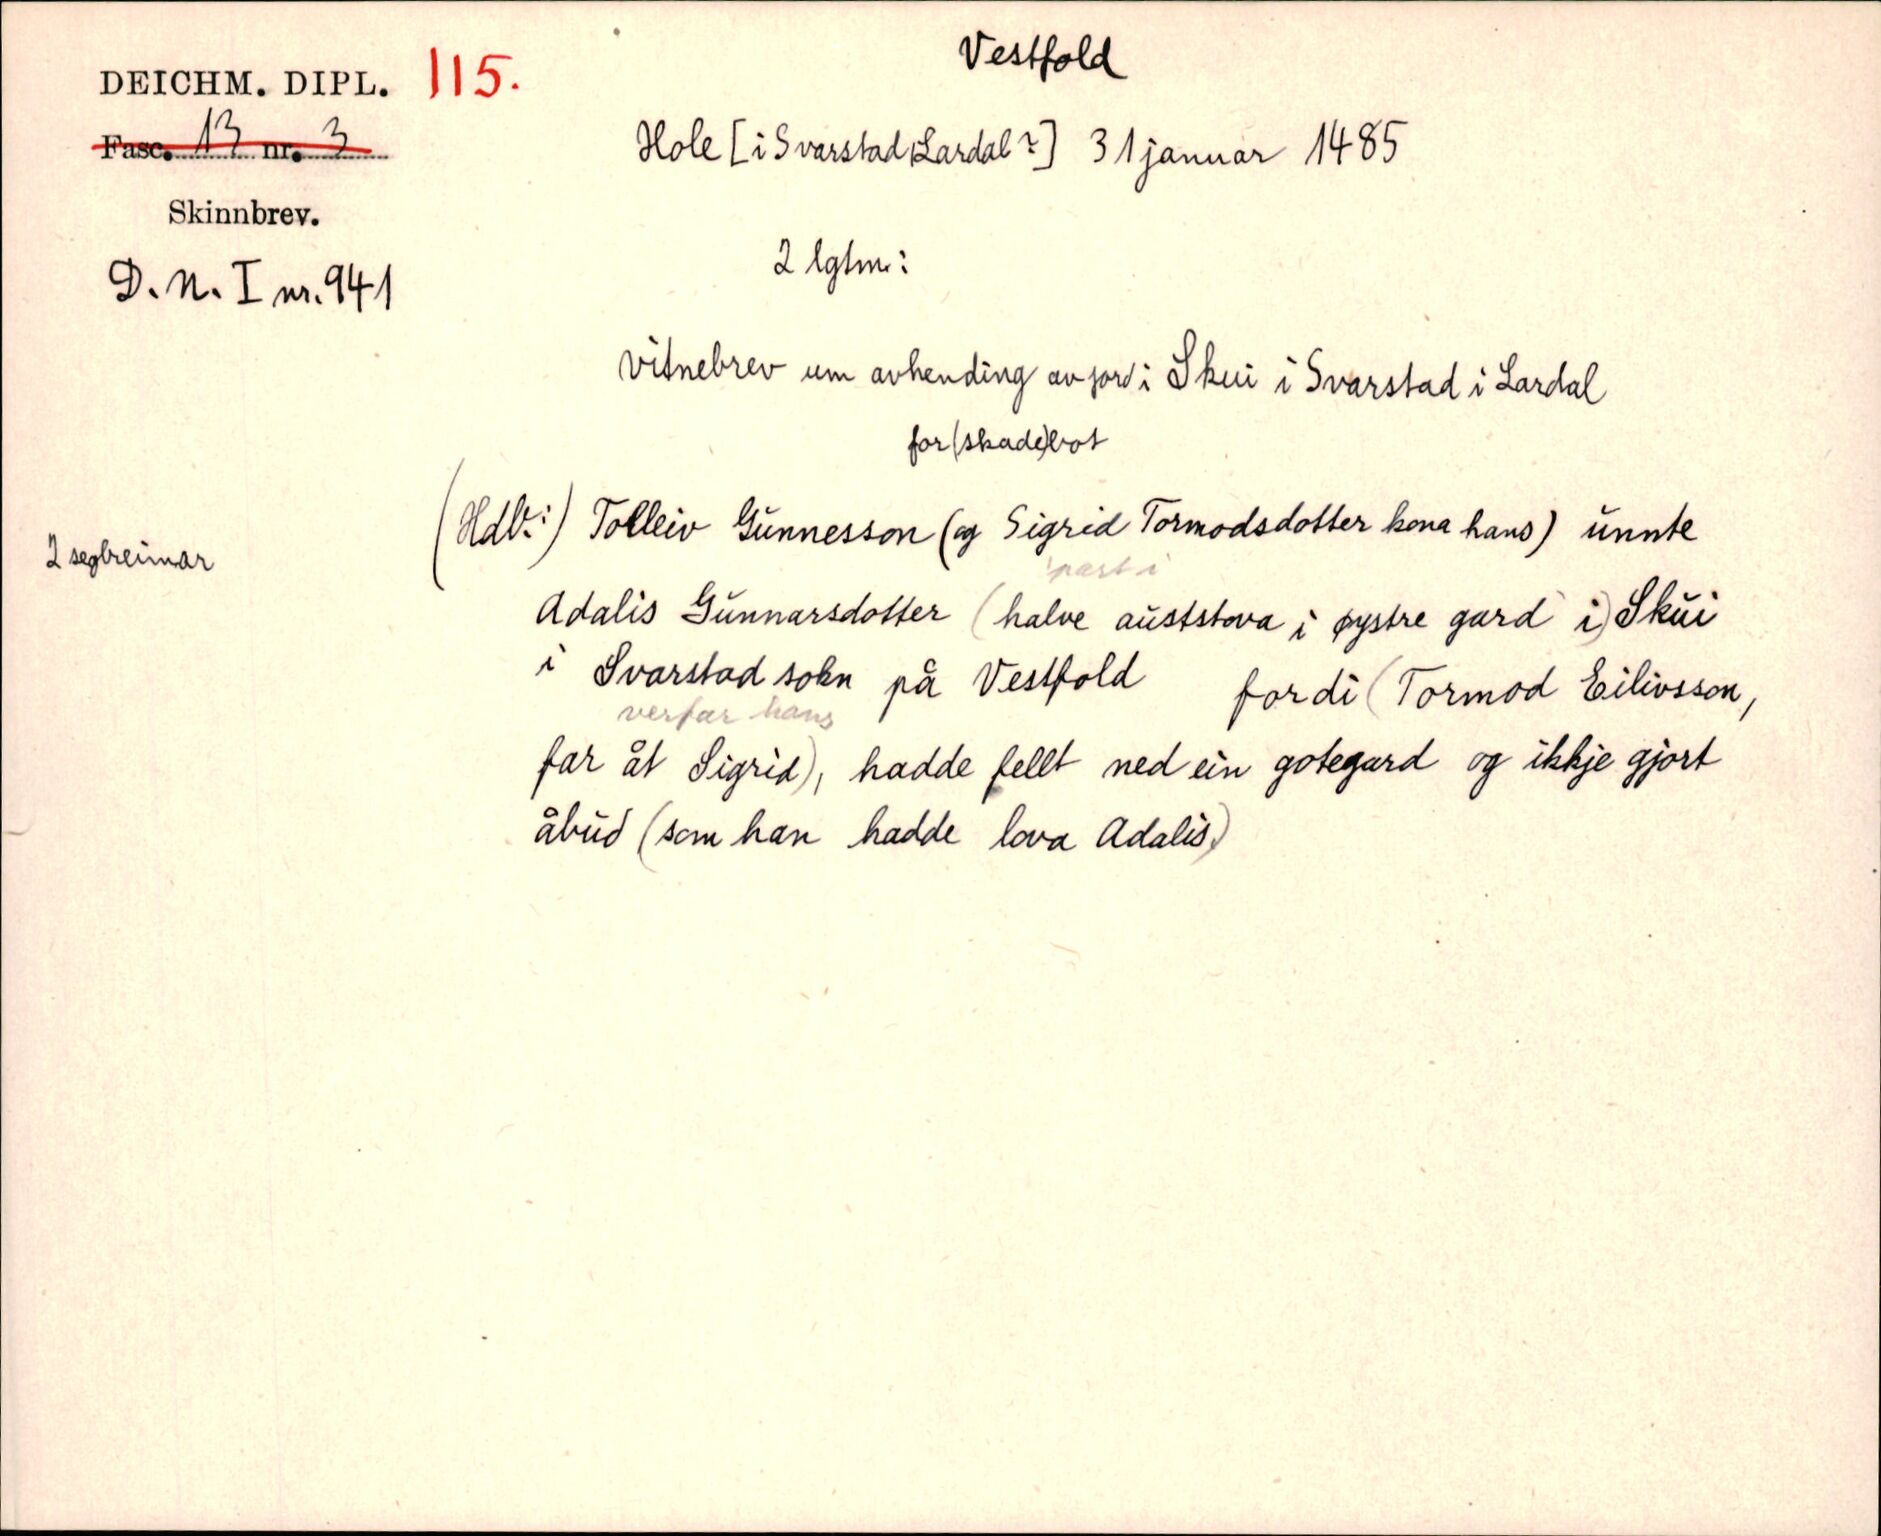 Vestfold
DEICHM. DIPL. 115.
Fasc. 13 nr. 3
Hole [i Svarstad, Lardal?] 31 januar 1485
Skinnbrev.
2 lgtm:
D. N. I nr. 941
Vitnebrev um avhending av jord i Skui i Svarstad i Lardal
for (skade)bot
(Hdl.:) Tolleiv Gunnesson (og Sigrid Tormodsdotter kona hans) unnte
2 seglreimar
part i
Adalis Gunnarsdotter (halve auststova i øystre gard i) Skui
i Svarstad sokn på Vestfold fordi (Tormod Eilivsson,
verfar hans
far åt Sigrid), hadde fellt ned ein gotegard og ikkje gjort
åbud (som han hadde lova Adalis)